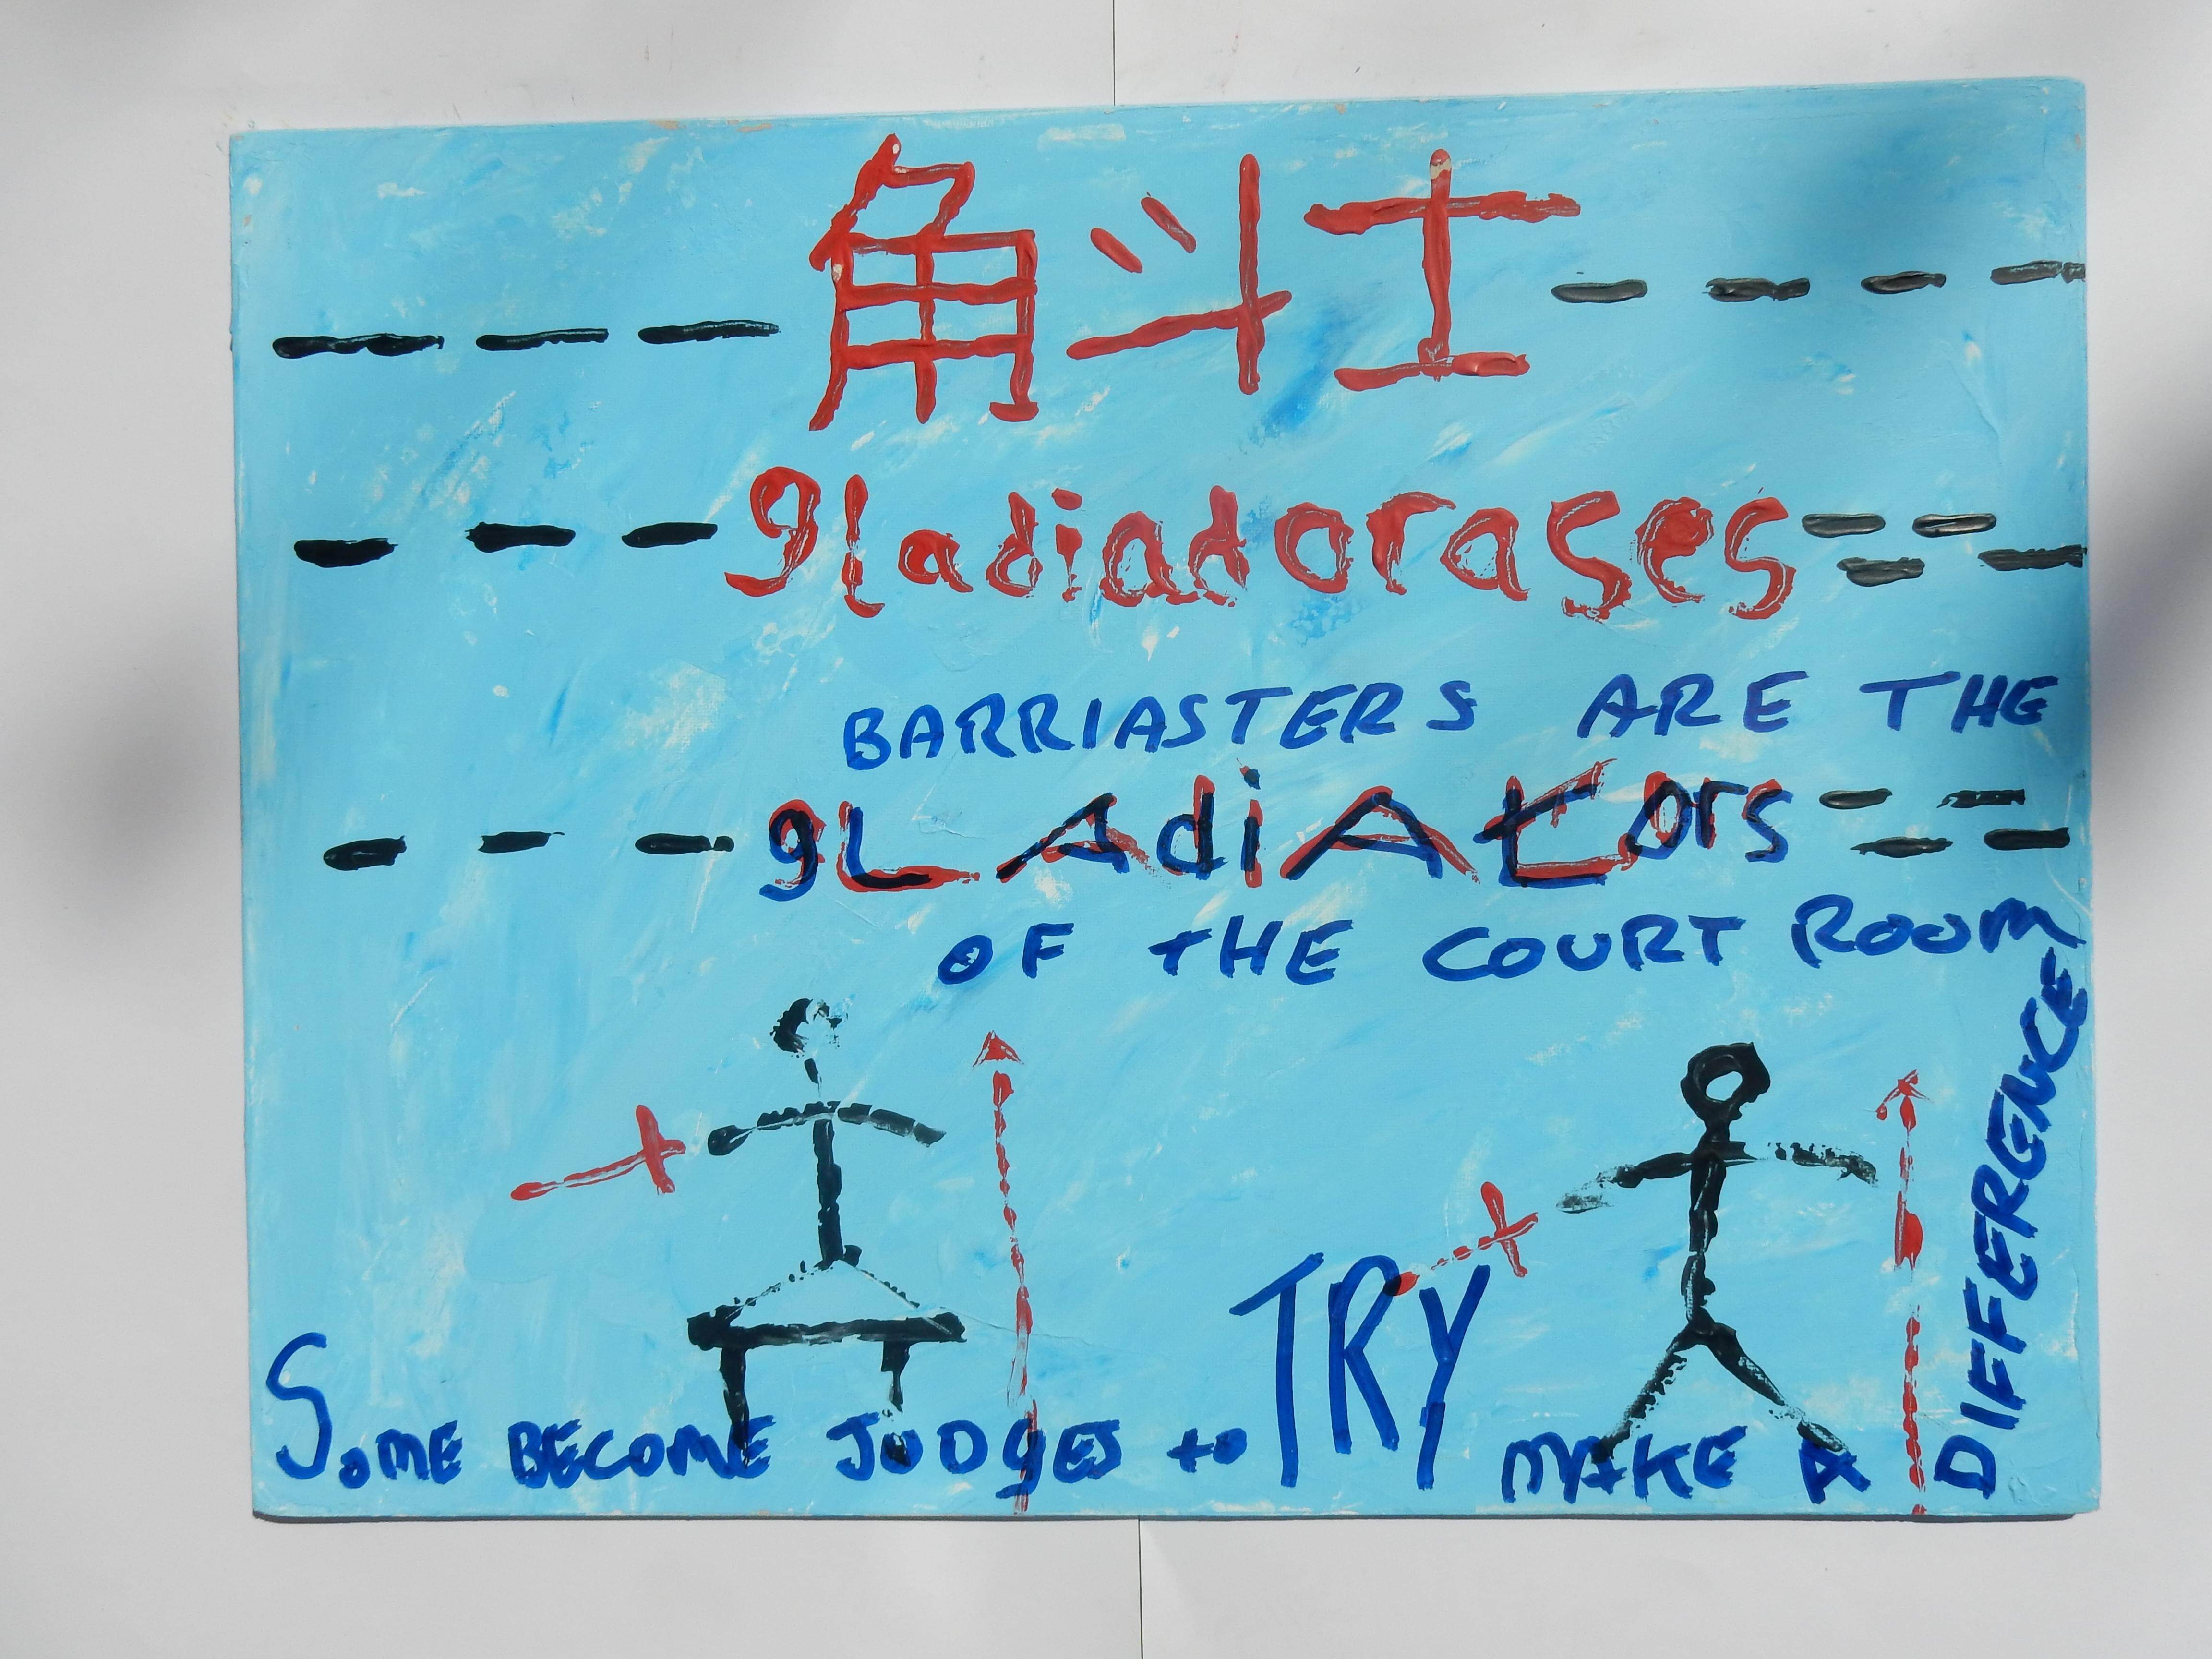 角斗士
gladiadorases
BARRIASTERS ARE THE
gLAdiAtors
OF tHE COURT ROOM
SoME BECOME JUDgES to TRY MAKE A DIFFERENCE